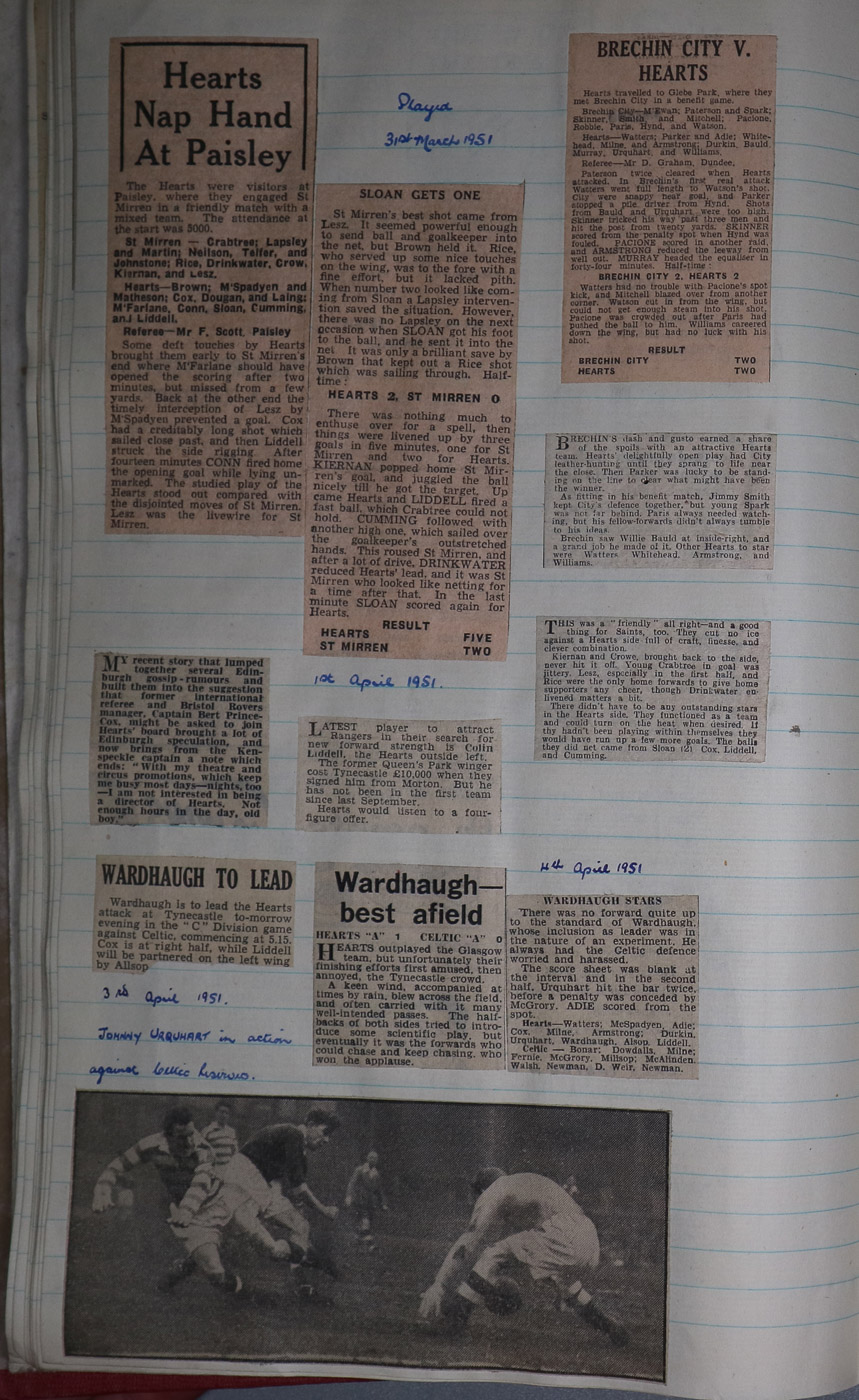 Hearts
Nap Hand
At Paisley
The Hearts were visitors at
Paisley, where they engaged St
Mirren in a friendly match with a
mixed team. The attendance at
the start was 3000.
St Mirren — Crabtree; Lapsley
and Martin; Neilson, Telfer, and
Johnstone; Rice, Drinkwater, Crow,
Kiernan, and Lesz.
Hearts—Brown; M'Spadyen and
Matheson; Cox, Dougan, and Laing;
M'Farlane, Conn, Sloan, Cumming,
and Liddell.
Referee—Mr F. Scott, Paisley
Some deft touches by Hearts
brought them early to St Mirren's
end where M'Farlane should have
opened the scoring after two
minutes, but missed from a few
yards. Back at the other end the
timely interception of Lesz by
M'Spadyen prevented a goal. Cox
had a creditably long shot which
sailed close past, and then Liddell
struck the side rigging. After
fourteen minutes CONN fired home
the opening goal while lying un-
marked. The studied play of the
Hearts stood out compared with
the disjointed moves of St Mirren.
Lesz was the livewire for St
Mirren.
Played
31st March 1951
SLOAN GETS ONE
St Mirren's best shot came from
Lesz. It seemed powerful enough
to send ball and goalkeeper into
the net, but Brown held it. Rice,
who served up some nice touches
on the wing, was to the fore with a
fine effort, but it lacked pith.
When number two looked like com-
ing from Sloan a Lapsley interven-
tion saved the situation. However,
there was no Lapsley on the next
occasion when SLOAN got his foot
to the ball, and he sent it into the
net. It was only a brilliant save by
Brown that kept out a Rice shot
which was sailing through. Half-
time:
HEARTS 2, ST MIRREN 0
There was nothing much to
enthuse over for a spell, then
things were livened up by three
goals in five minutes, one for St
Mirren and two for Hearts.
KIERNAN popped home St Mir-
ren's goal, and juggled the ball
nicely till he got the target. Up
came Hearts and LIDDELL fired a
fast ball, which Crabtree could not
hold. CUMMING followed with
another high one, which sailed over
the goalkeeper's outstretched
hands. This roused St Mirren, and
after a lot of drive, DRINKWATER
reduced Hearts' lead, and it was St
Mirren who looked like netting for
a time after that. In the last
minute SLOAN scored again for
Hearts.
RESULT
HEARTS FIVE
ST MIRREN TWO
BRECHIN CITY V.
HEARTS
Hearts travelled to Glebe Park, where they
met Brechin City in a benefit game.
Brechin City—M'Ewan; Paterson and Spark;
Skinner, Smith, and Mitchell; Pacione,
Robbie, Paris, Hynd, and Watson.
Hearts—Watters; Parker and Adie; White-
head, Milne, and Armstrong; Durkin, Bauld,
Murray, Urquhart, and Williams.
Referee—Mr D. Graham, Dundee.
Paterson twice cleared when Hearts
attacked. In Brechin's first real attack
Watters went full length to Watson's shot.
City were snappy near goal, and Parker
stopped a pile driver from Hynd. Shots
from Bauld and Urquhart were too high.
Skinner tricked his way past three men and
hit the post from twenty yards. SKINNER
scored from the penalty spot when Hynd was
fouled. PACIONE scored in another raid,
and ARMSTRONG reduced the leeway from
well out. MURRAY headed the equaliser in
forty-four minutes. Half-time:
BRECHIN CITY 2, HEARTS 2
Watters had no trouble with Pacione's spot
kick, and Mitchell blazed over from another
corner. Watson cut in from the wing, but
could not get enough steam into his shot.
Pacione was crowded out after Paris had
pushed the ball to him. Williams careered
down the wing, but had no luck with his
shot.
RESULT
BRECHIN CITY TWO
HEARTS TWO
BRECHIN'S dash and gusto earned a share
of the spoils with an attractive Hearts
team. Hearts' delightfully open play had City
leather-hunting until they sprang to life near
the close. Then Parker was lucky to be stand-
ing on the line to clear what might have been
the winner.
As fitting in his benefit match, Jimmy Smith
kept City's defence together, but young Spark
was not far behind. Paris always needed watch-
ing, but his fellow-forwards didn't always tumble
to his ideas.
Brechin saw Willie Bauld at inside-right, and
a grand job he made of it. Other Hearts to star
were Watters, Whitehead, Armstrong, and
Williams.
THIS was a "friendly" all right—and a good
thing for Saints, too. They cut no ice
against a Hearts side full of craft, finesse, and
clever combination.
Kiernan and Crowe, brought back to the side,
never hit it off. Young Crabtree in goal was
jittery. Lesz, especially in the first half, and
Rice were the only home forwards to give home
supporters any cheer, though Drinkwater en-
livened matters a bit.
There didn't have to be any outstanding stars
in the Hearts side. They functioned as a team
and could turn on the heat when desired. If
thy hadn't been playing within themselves they
would have run up a few more goals. The balls
they did net came from Sloan (2) Cox, Liddell,
and Cumming.
MY recent story that lumped
together several Edin-
burgh gossip-rumours and
built them into the suggestion
that former international
referee and Bristol Rovers
manager, Captain Bert Prince-
Cox, might be asked to join
Hearts' board brought a lot of
Edinburgh speculation, and
now brings from the Ken-
speckle captain a note which
ends: "With my theatre and
circus promotions, which keep
me busy most days—nights, too
—I am not interested in being
a director of Hearts. Not
enough hours in the day, old
boy."
1st April 1951.
LATEST player to attract
Rangers in their search for
new forward strength is Colin
Liddell, the Hearts outside left.
The former Queen's Park winger
cost Tynecastle £10,000 when they
signed him from Morton. But he
has not been in the first team
since last September.
Hearts would listen to a four-
figure offer.
WARDHAUGH TO LEAD
Wardhaugh is to lead the Hearts
attack at Tynecastle to-morrow
evening in the "C" Division game
against Celtic, commencing at 5.15.
Cox is at right half, while Liddell
will be partnered on the left wing
by Allsop
3rd April 1951.
JOHNNY URQUHART in action
against Celtic Reserves.
Wardhaugh—
best afield
HEARTS "A" 1 CELTIC "A" 0
HEARTS outplayed the Glasgow
team, but unfortunately their
finishing efforts first amused, then
annoyed, the Tynecastle crowd.
A keen wind, accompanied at
times by rain, blew across the field,
and often carried with it many
well-intended passes. The half-
backs of both sides tried to intro-
duce some scientific play, but
eventually it was the forwards who
could chase and keep chasing, who
won the applause.
4th April 1951
WARDHAUGH STARS
There was no forward quite up
to the standard of Wardhaugh,
whose inclusion as leader was in
the nature of an experiment. He
always had the Celtic defence
worried and harassed.
The score sheet was blank at
the interval and in the second
half, Urquhart hit the bar twice,
before a penalty was conceded by
McGrory. ADIE scored from the
spot.
Hearts—Watters; McSpadyen, Adie;
Cox, Milne, Armstrong; Durkin,
Urquhart, Wardhaugh, Alsop, Liddell.
Celtic — Bonar; Dowdalls, Milne;
Fernie, McGrory, Millsop; McAlinden,
Walsh, Newman, D. Weir, Newman.